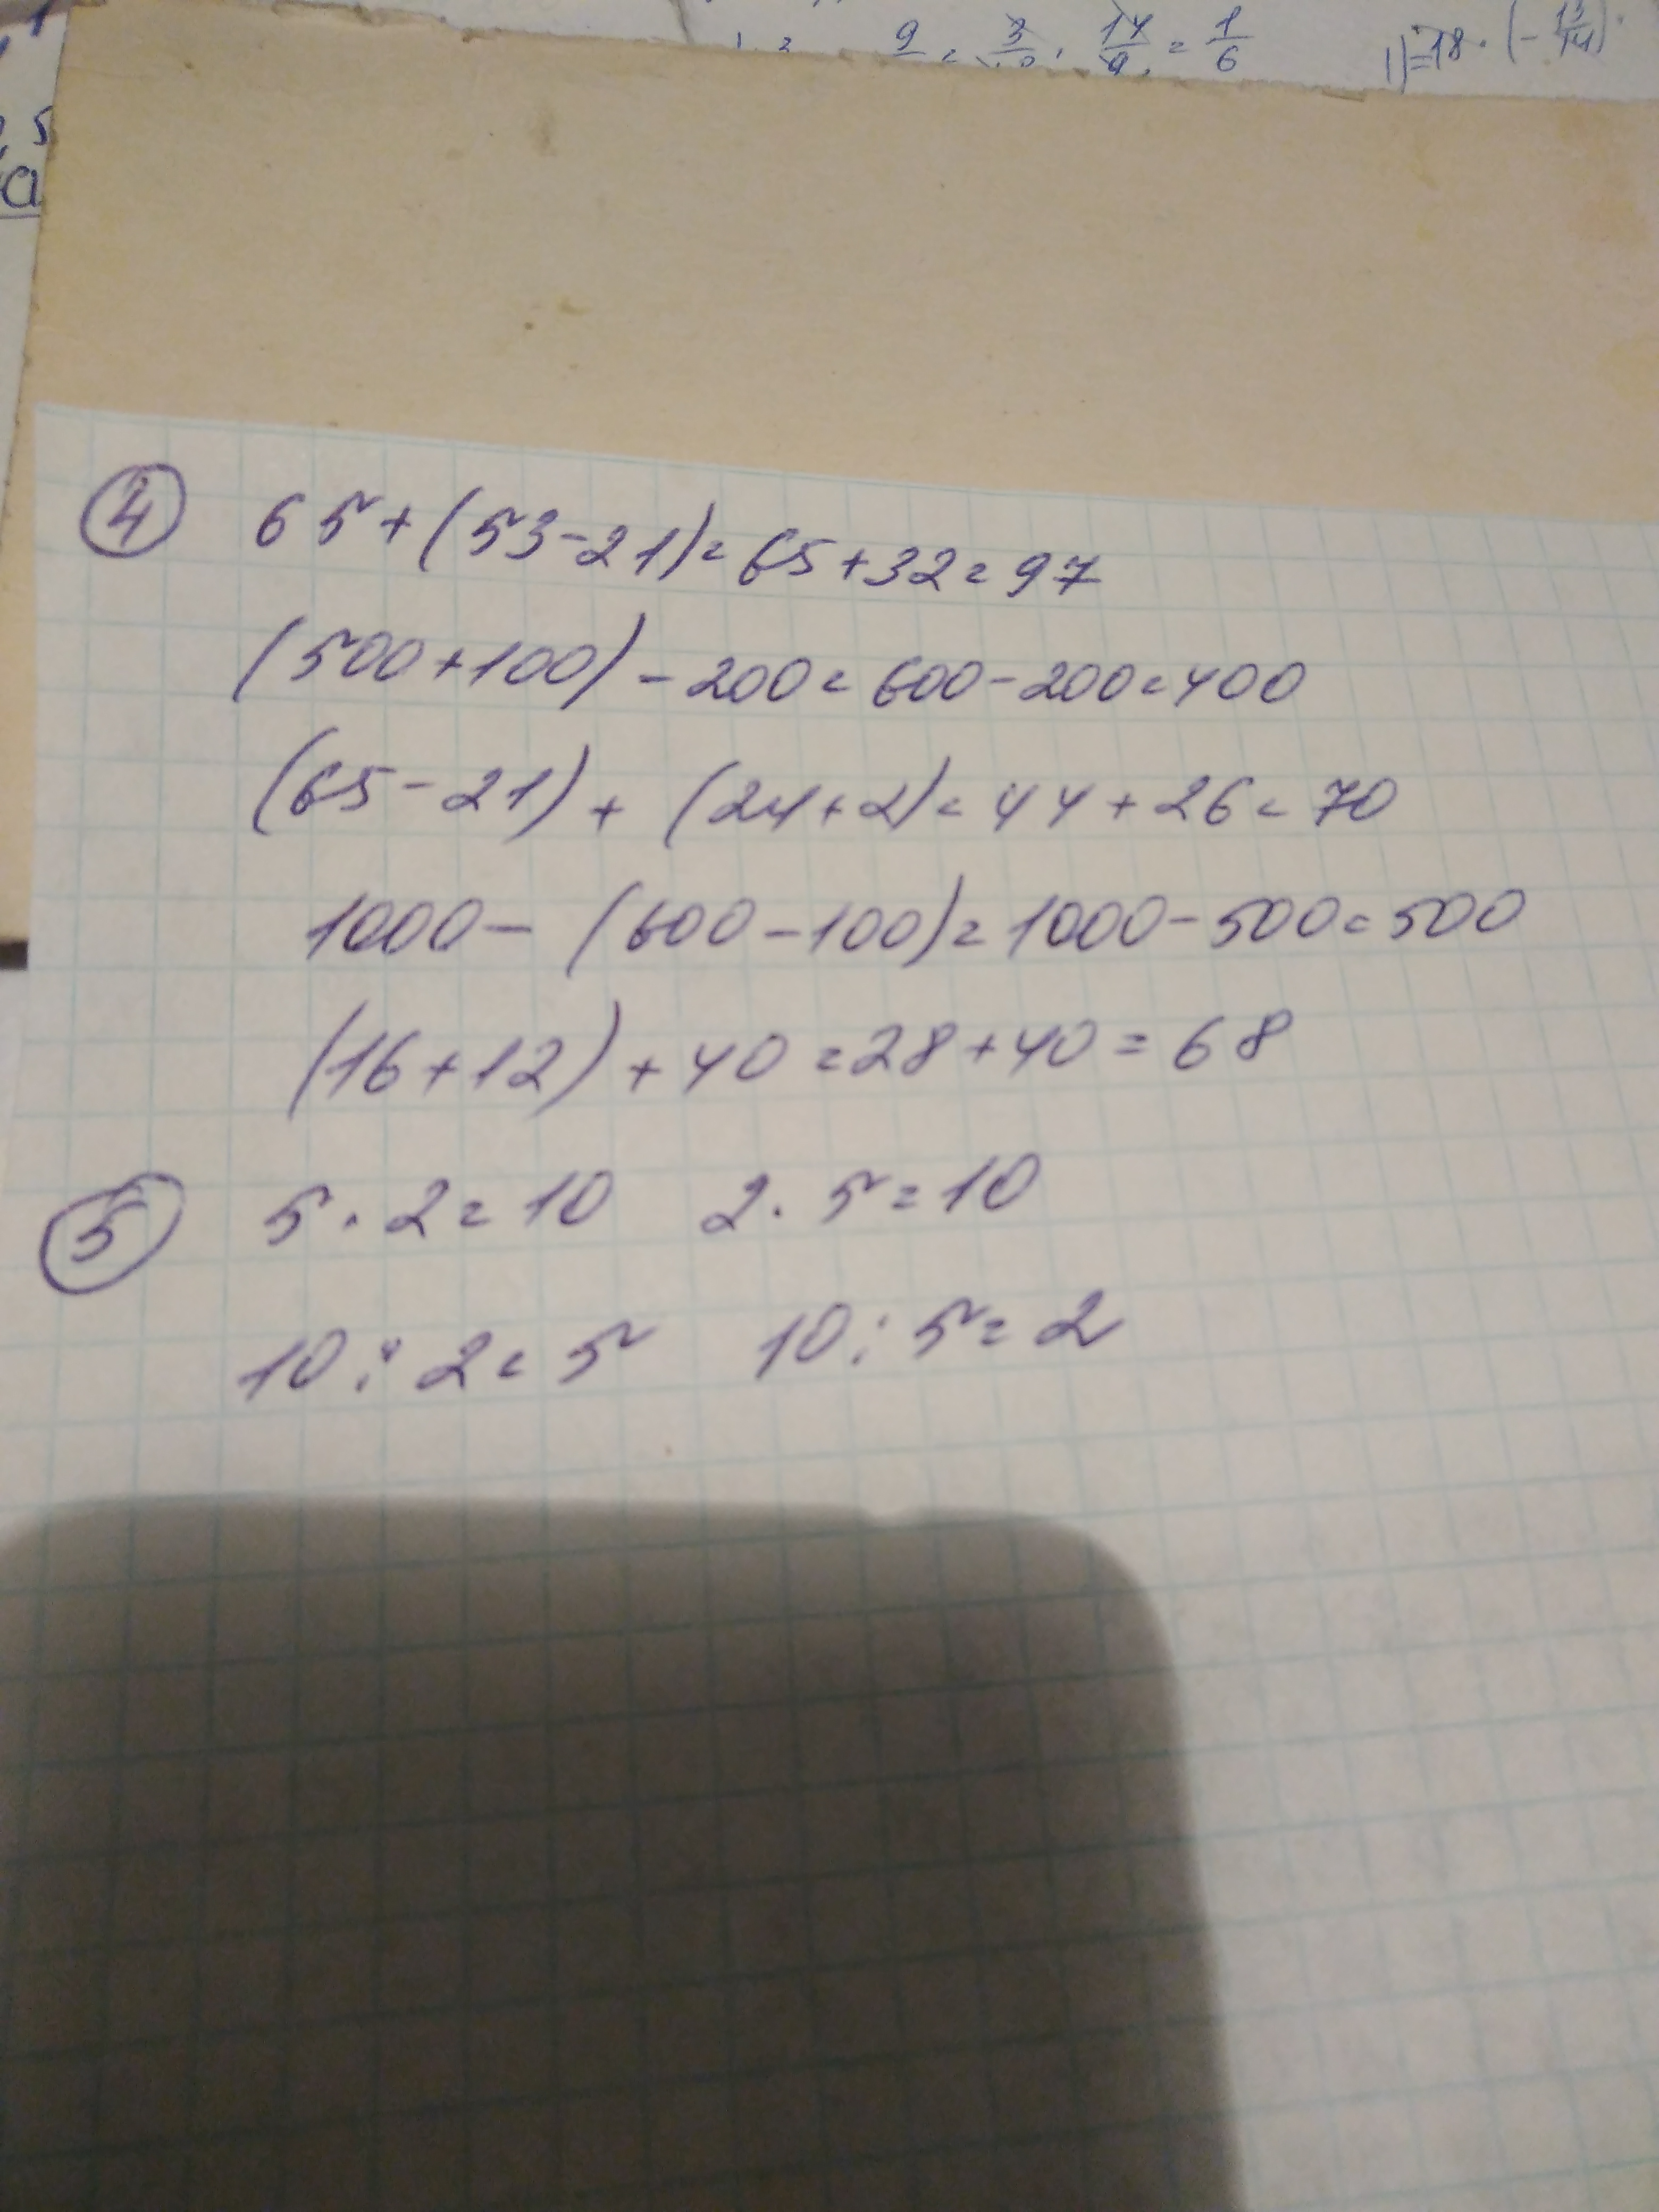 9/ = 3/ · 17/9 = 1/6
1)=18·(-13/14)·
, 5
а
④ 65+(53-21)=65+32=97
(500+100)-200=600-200=400
(65-21)+(24+2)=44+26=70
1000-(600-100)=1000-500=500
(16+12)+40=28+40=68
⑤ 5·2=10 2·5=10
10:2=5 10:5=2